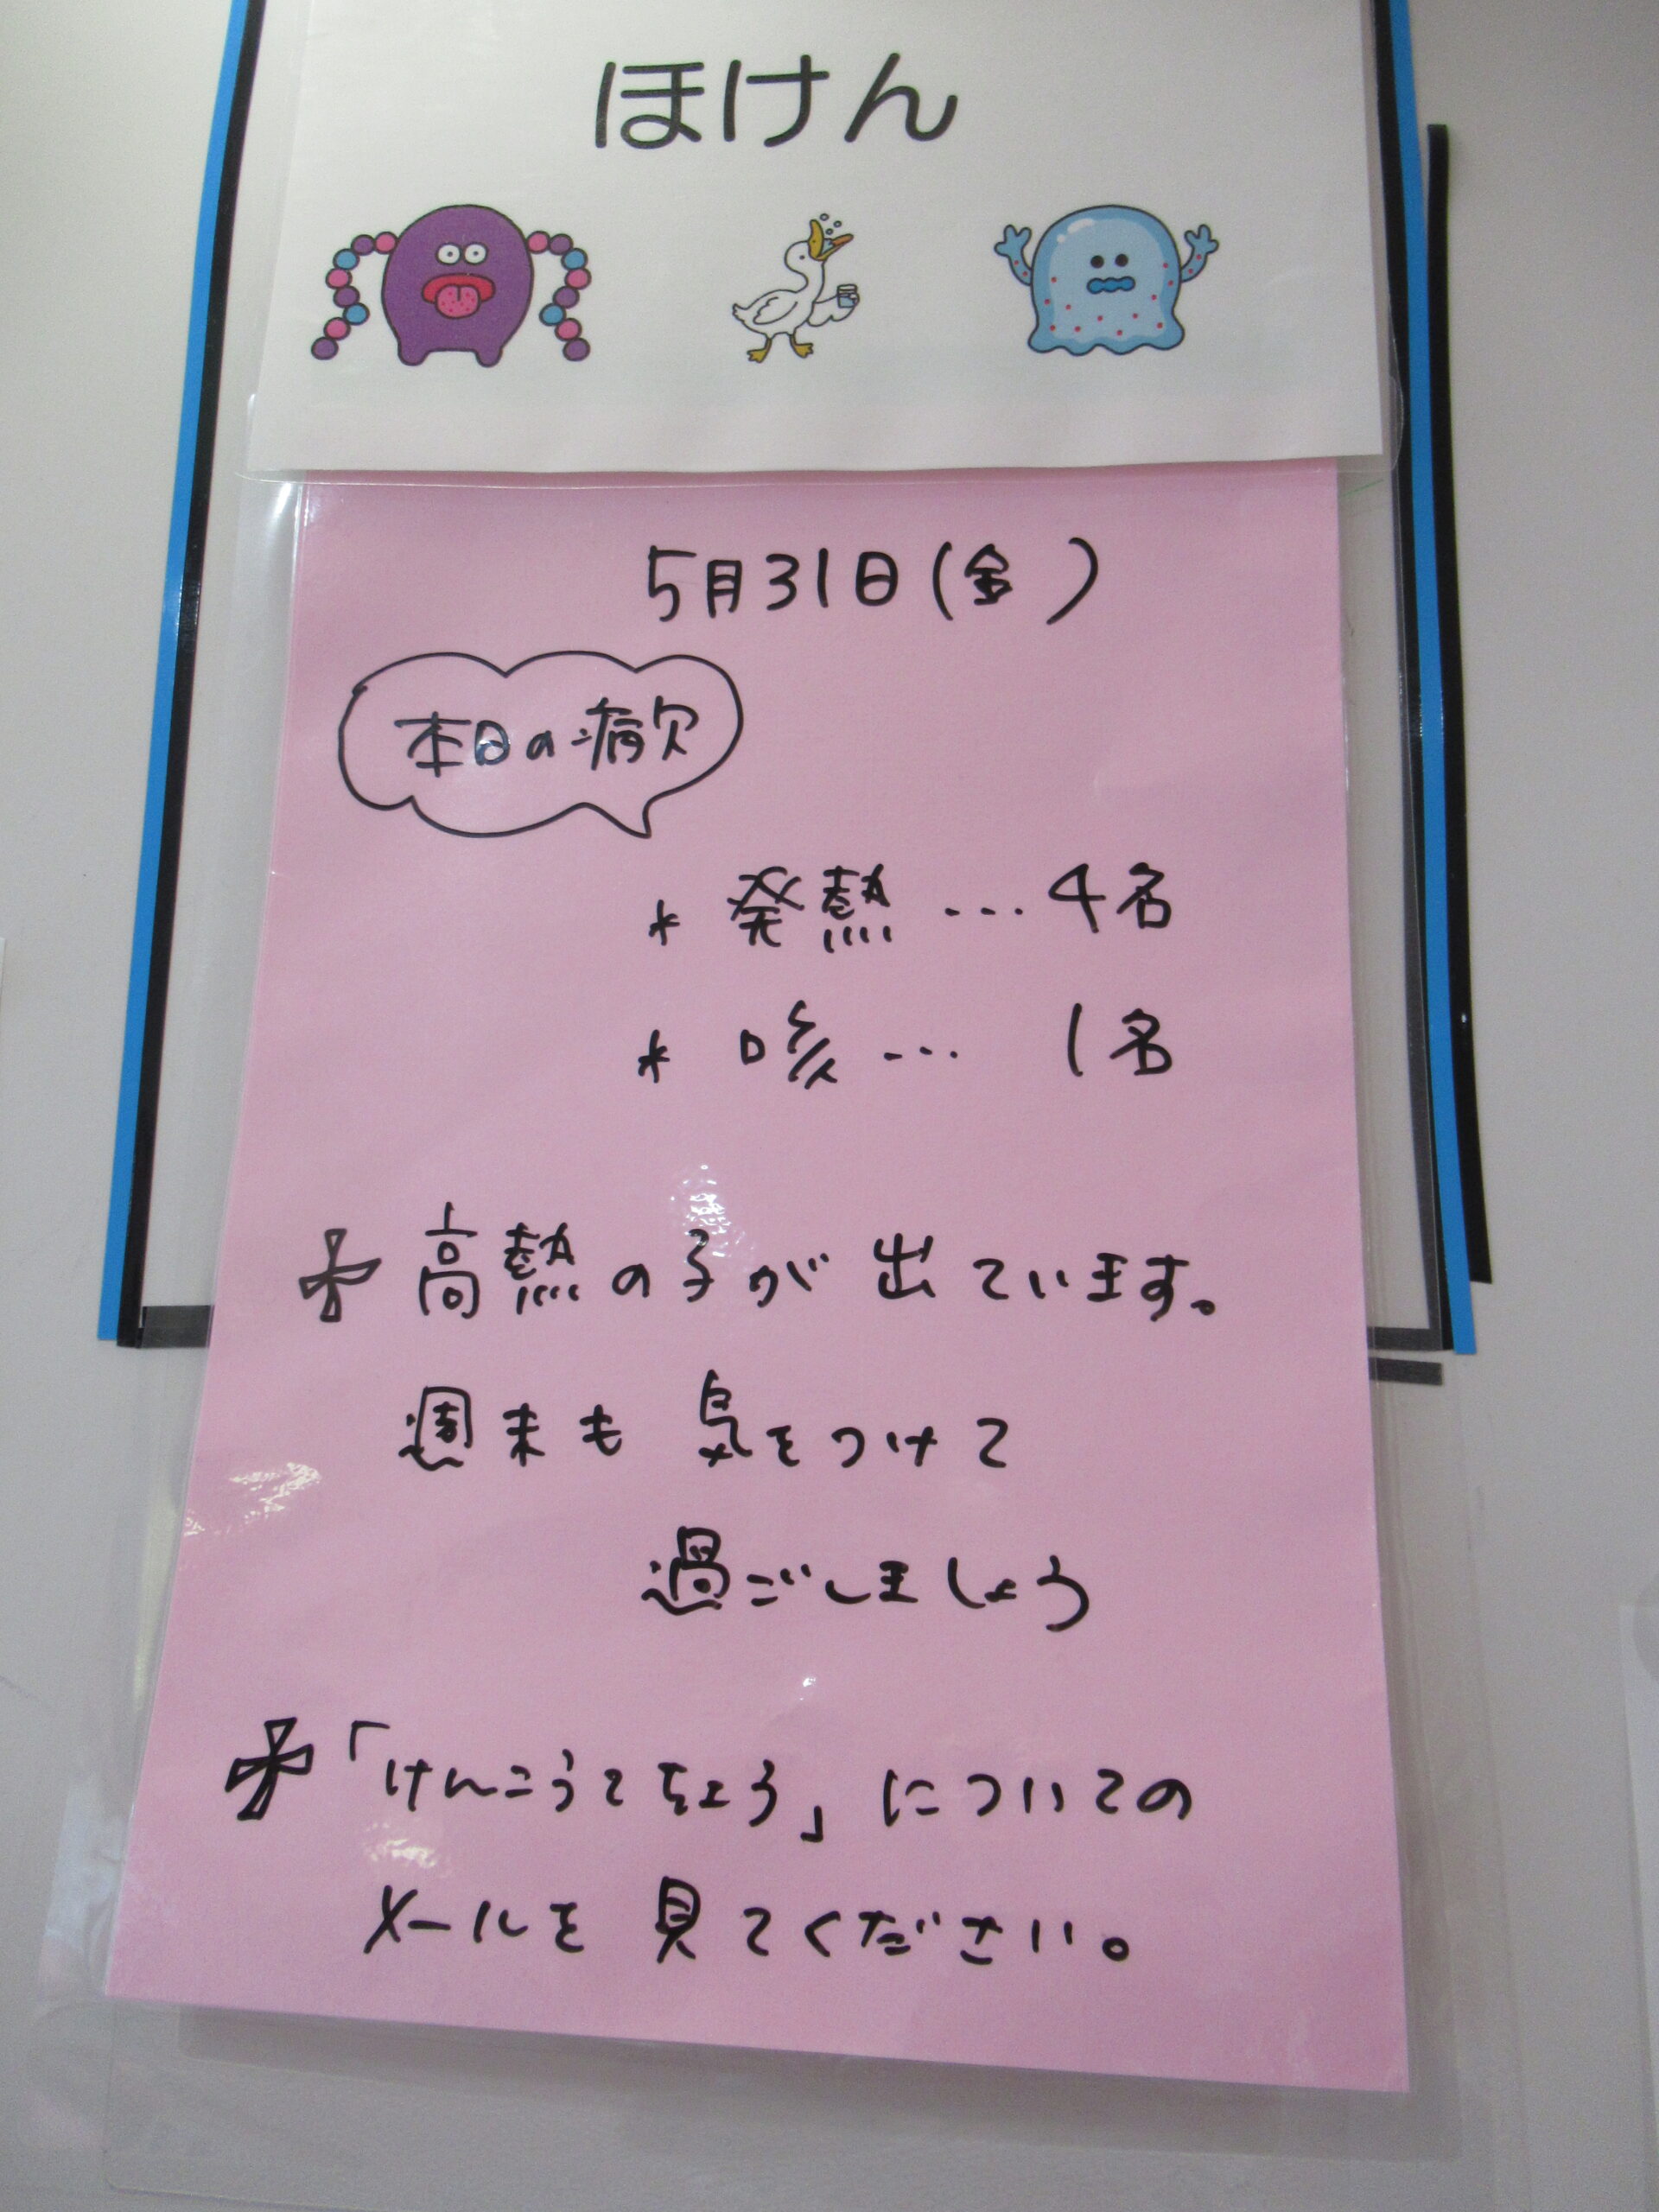 ほけん
5月31日(金)
本日の病欠
* 発熱…4名
* 咳… 1名
高熱の子が出ています。
週末も気をつけて
過ごしましょう
「けんこうてちょう」についての
メールを見てください。